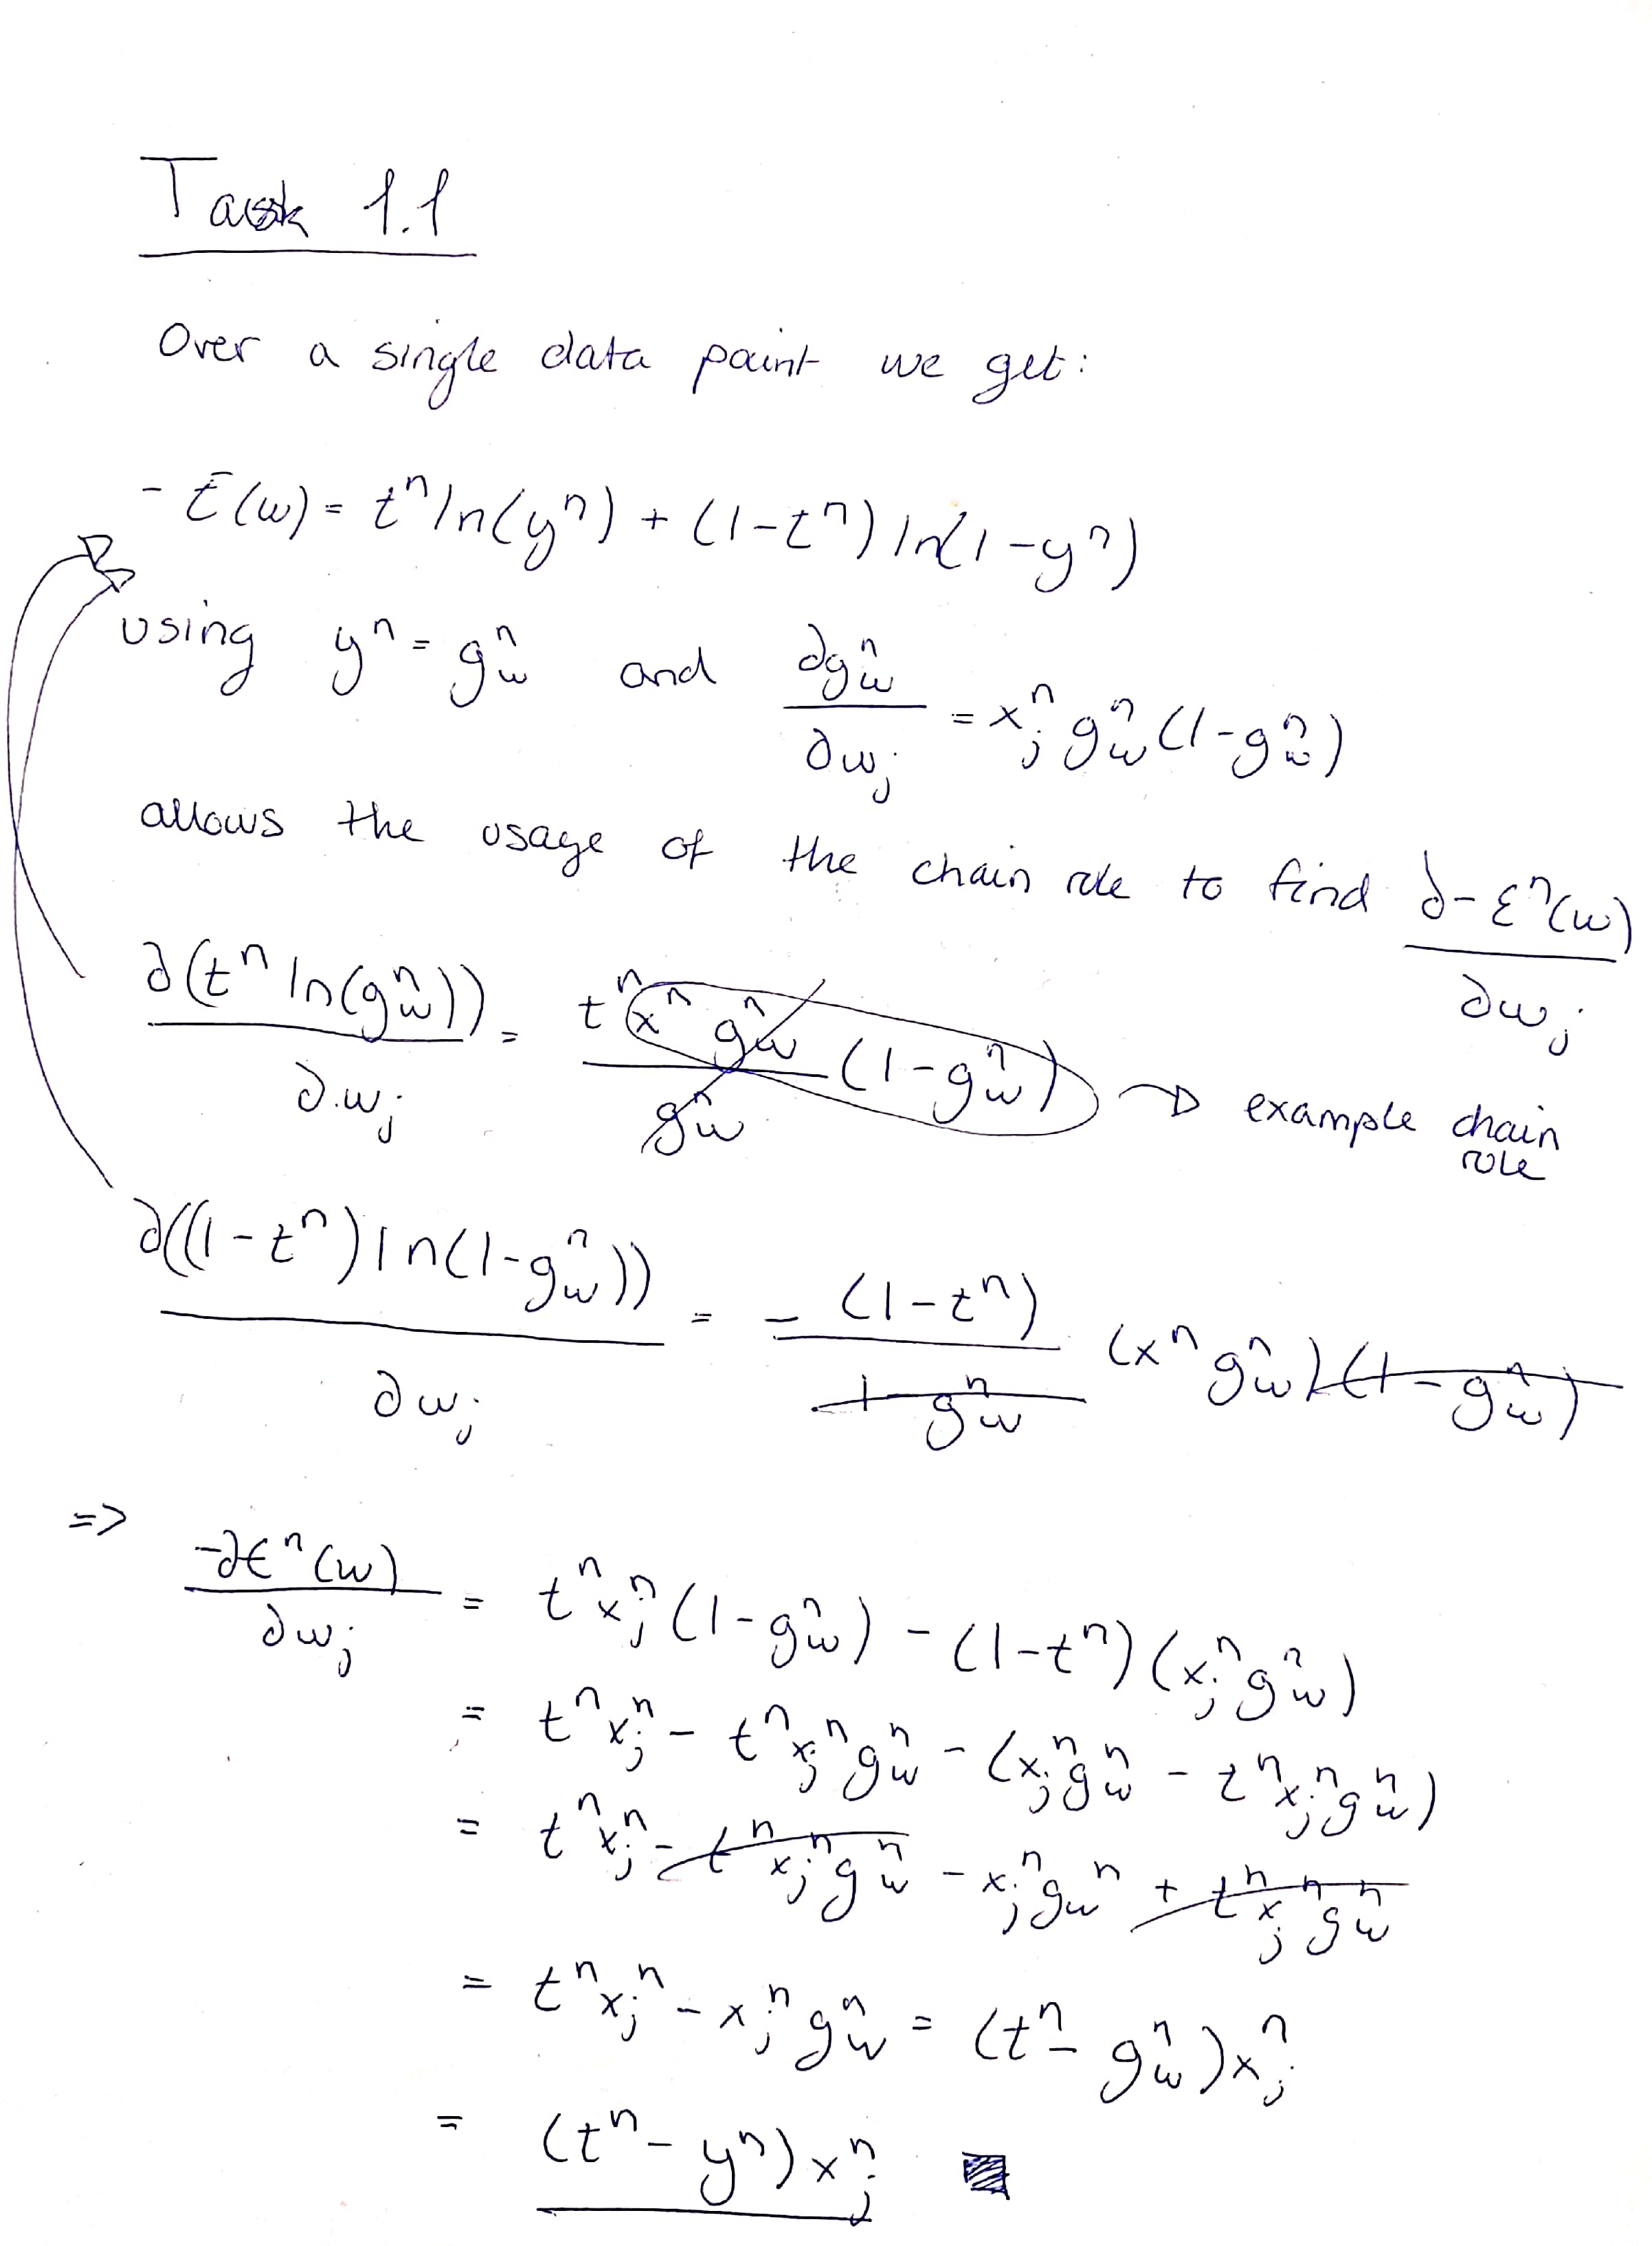 Task 1.1
Over a single data point we get:
- E(w) = t^n ln(y^n) + (1-t^n) ln(1-y^n)
using y^n = g_w^n and ∂g_w^n / ∂w_j = x_j^n g_w^n (1-g_w^n)
allows the usage of the chain rule to find ∂- ε^n(w) / ∂w_j
∂(t^n ln(g_w^n)) / ∂w_j = t^n x^n g_w^n / g_w^n (1-g_w^n) → example chain rule
∂((1-t^n) ln(1-g_w^n)) / ∂w_j = - (1-t^n) / 1-g_w^n (x^n g_w^n)(1-g_w^n)
=> -∂ε^n(w) / ∂w_j = t^n x_j^n (1-g_w^n) - (1-t^n)(x_j^n g_w^n)
= t^n x_j^n - t^n x_j^n g_w^n - (x_j^n g_w^n - t^n x_j^n g_w^n)
= t^n x_j^n - t^n x_j^n g_w^n - x_j^n g_w^n + t^n x_j^n g_w^n
= t^n x_j^n - x_j^n g_w^n = (t^n - g_w^n) x_j^n
= (t^n - y^n) x_j^n